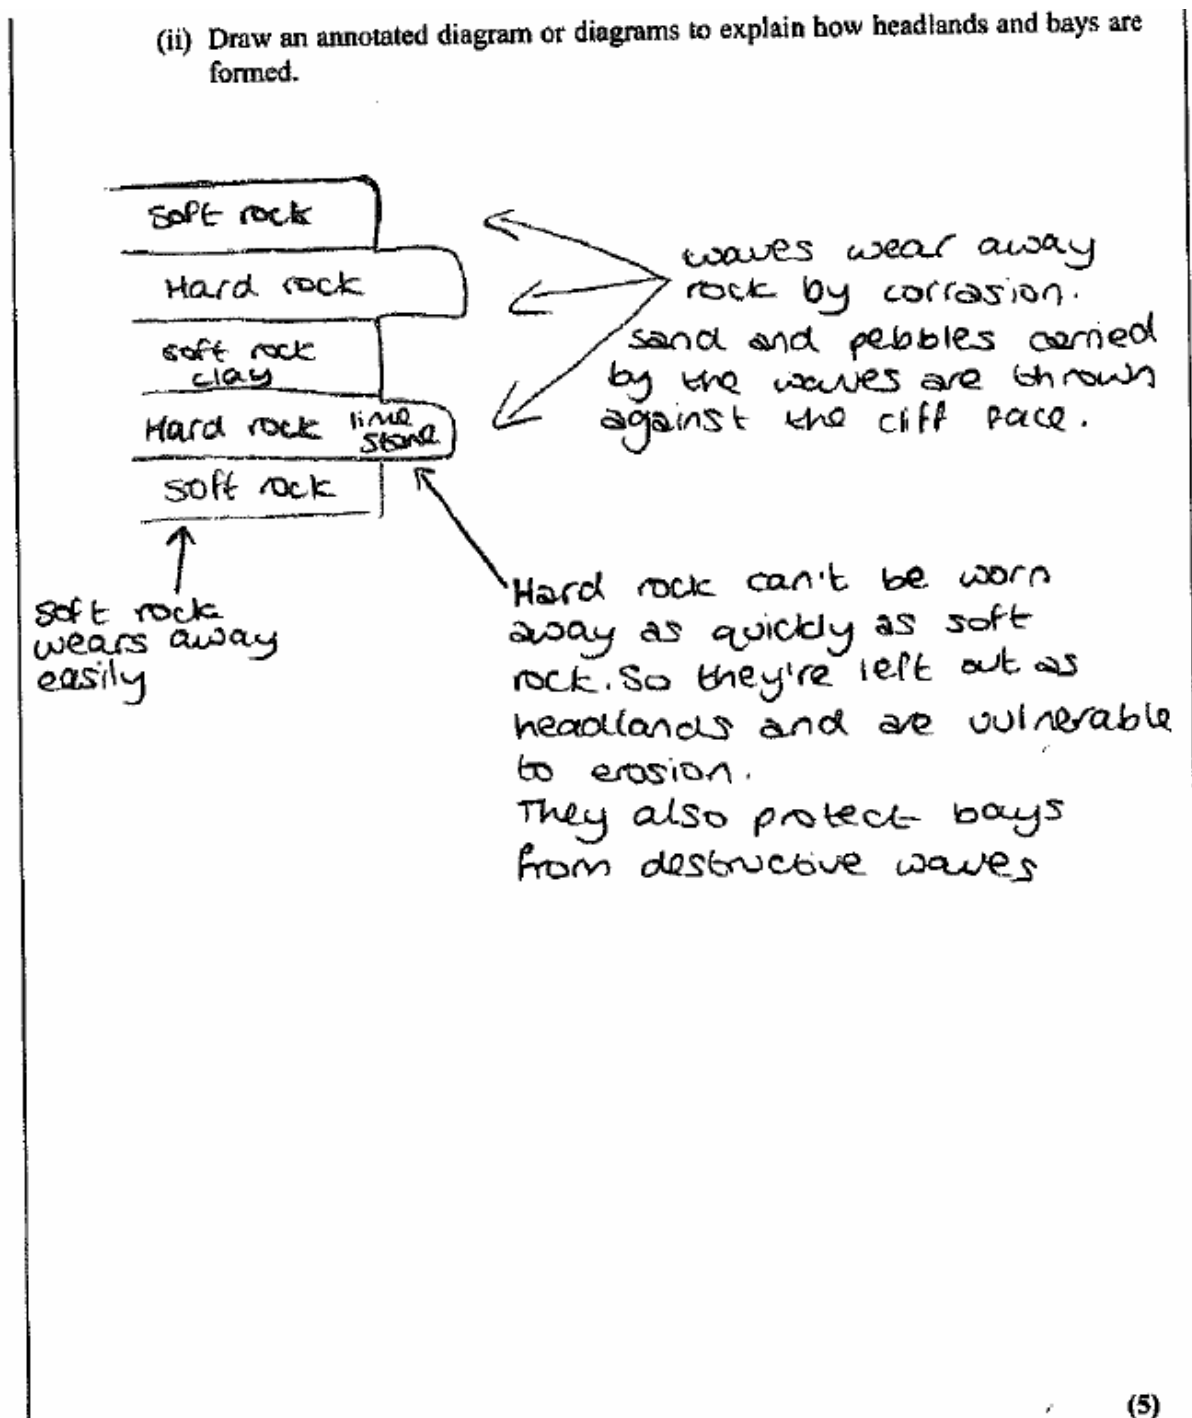 (ii) Draw an annotated diagram or diagrams to explain how headlands and bays are
formed.
soft rock
Hard rock
soft rock
clay
Hard rock lime
stone
soft rock
waves wear away
rock by corrasion.
sand and pebbles carried
by the waves are thrown
against the cliff face.
soft rock
wears away
easily
Hard rock can't be worn
away as quickly as soft
rock. So they're left out as
headlands and are vulnerable
to erosion.
They also protect bays
from destructive waves
(5)